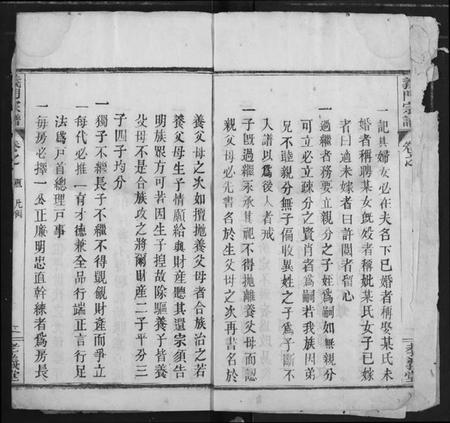 義門宗譜 卷之
一記與婦女必在夫名下已婚者稱娶某氏未
婚者稱聘某女既歿者稱妣某氏女子已嫁
者曰適未嫁者曰許閱者留心
一過繼者務要立親分之子姪為嗣如無親分
可立必立疎分之賢肖者為嗣若我族因弟
兄不睦親分無子偏收異姓之子為子斷不
入譜以為後人者戒
一子既過繼承其祀不得拋離養父母而認
親父母必先書名於生父母之次再書名於
孝義堂
養父母之次如擅拋養父母者合族治之若
養父母生予情願給與財產聽其還宗須告
明族眾方可若因生子捏故除驅養子皆養
父母不是合族攻之將爾財產二子平分三
子四子均分
一獨子不繼長子不繼不得覬覦財產而爭立
一每代必推一育才德兼全品行端正言行足
法為戶首總理戶事
一每房必擇一公正廉明忠直幹練者為房長
義門宗譜 卷之 凡例
孝義堂